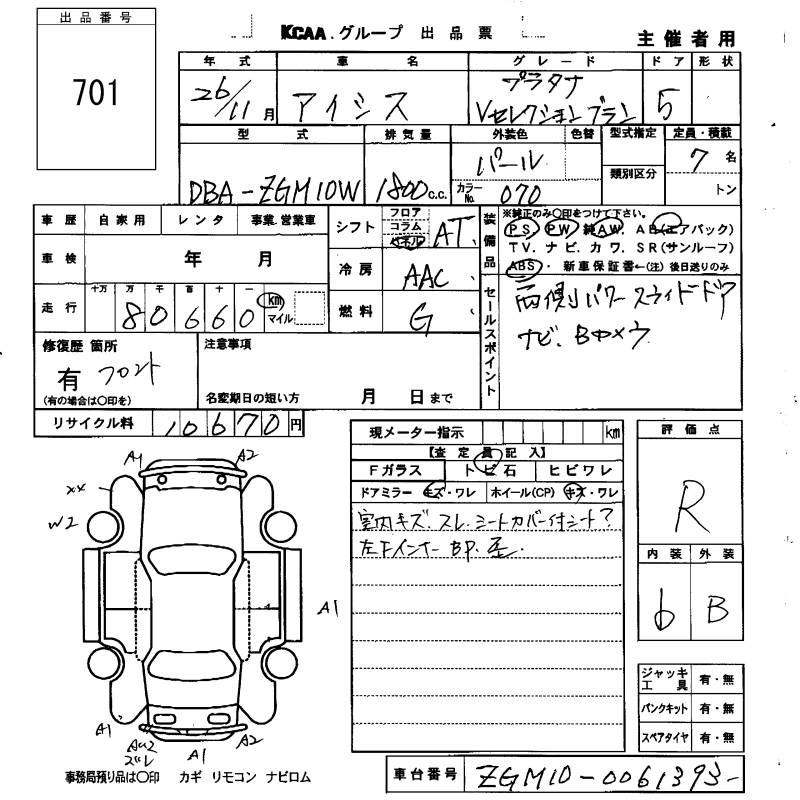 出品番号
701
KCAA.グループ 出品票
主催者用
年式 車名 グレード ドア 形状
26/11月 アイシス プラタナ
Vセレクション 5
型式 排気量 外装色 色替 型式指定 定員・積載
類別区分
DBA-ZGM10W 1800c.c. パール 7名
カラーNo. 070 トン
車歴 自家用 レンタ 事業.営業車
車検 年 月
走行 十万 万 千 百 十 一
80660 km マイル
シフト フロア コラム パネル AT
冷房 AAC
燃料 G
装備品
※純正のみ〇印をつけて下さい。
PS PW 純AW. AB(エアバック)
TV. ナビ. カワ. SR(サンルーフ)
ABS. 新車保証書←(注) 後日送りのみ
セールスポイント
両側パワースライドドア
ナビ、Bカメラ
修復歴 箇所
有 フロント
(有の場合は〇印を)
注意事項
名変期日の短い方 月 日まで
リサイクル料 10670円
現メーター指示 km
【査定員記入】
Fガラス トビ石 ヒビワレ
ドアミラー キズ・ワレ ホイール(CP) キズ・ワレ
室内キズ. スレ. シートカバー付シート?
左Fインナー BP. 歪.
評価点
R
内装 外装
6 B
ジャッキ工具 有・無
パンクキット 有・無
スペアタイヤ 有・無
A1 A2
××
W2
A1
A1 A2
ズレ A1
事務局預り品は〇印 カギ リモコン ナビロム
車台番号 ZGM10-0061393-